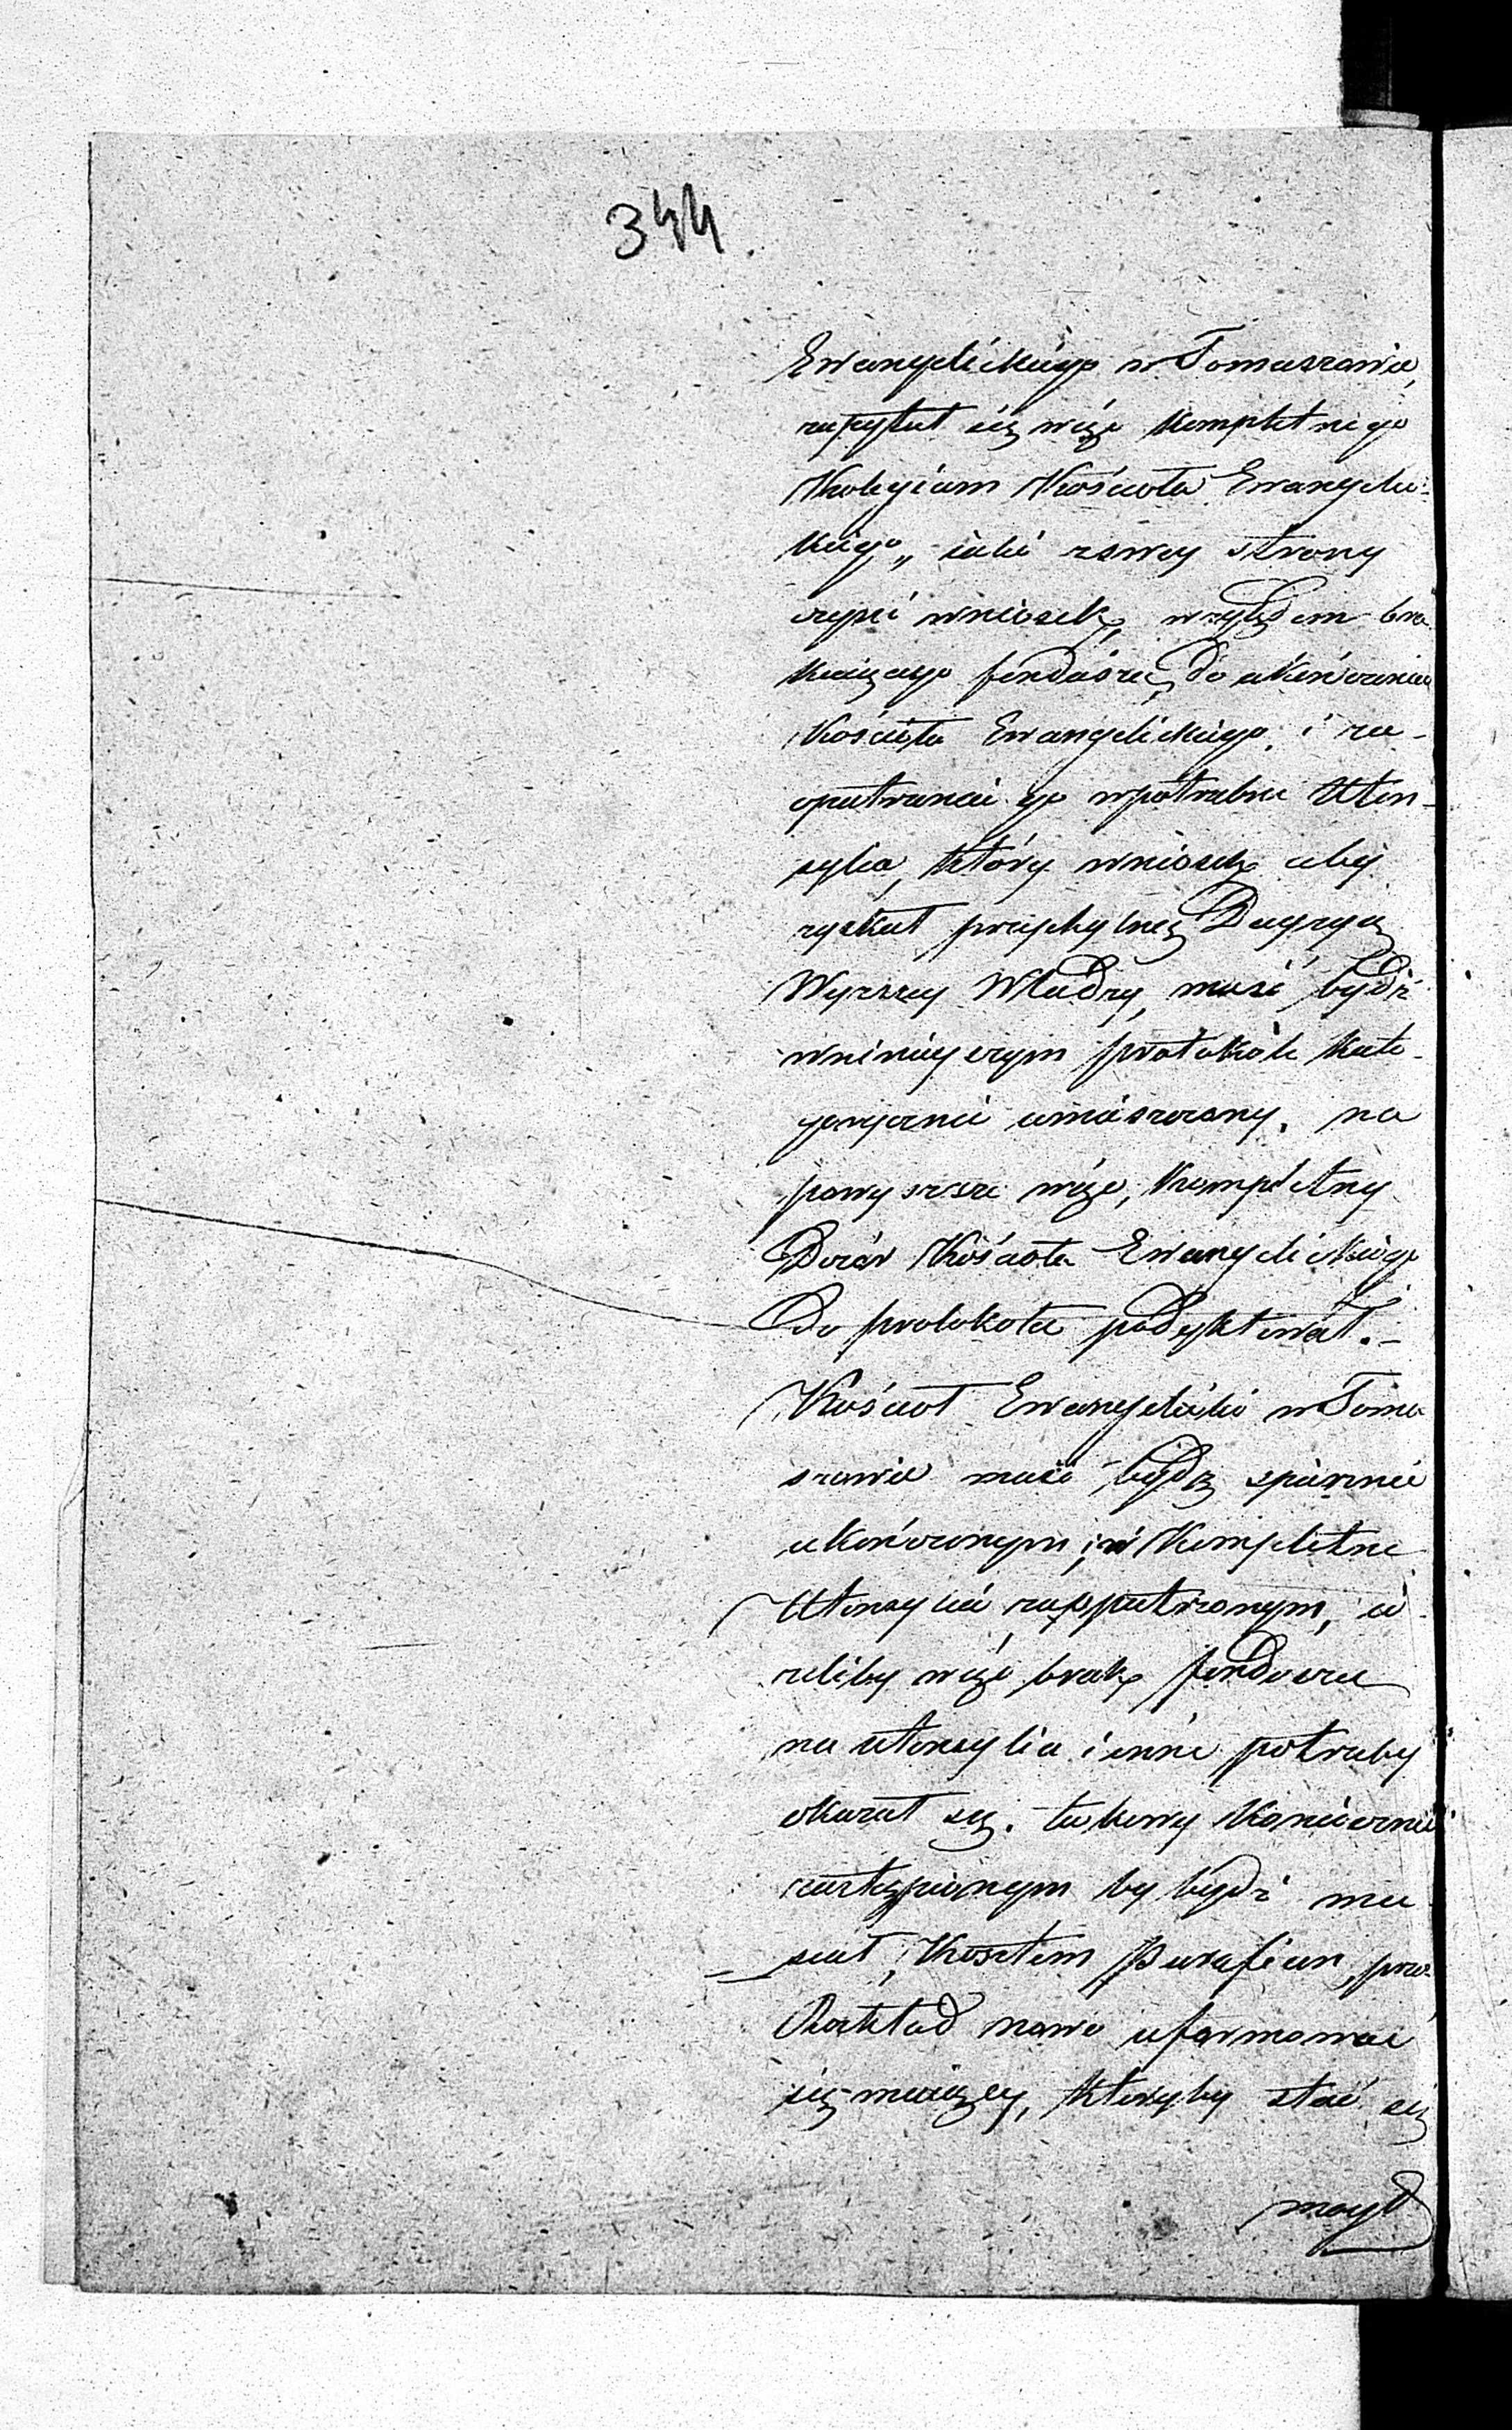 344
Ewangelickiego w Tomaszowie,
zapytał się więc kompletnego
Kolegium Kościoła Ewangelic-
kiego, iaki z swey strony
czyni wniosek, względem bra
kuiącego funduszu, do ukończenia
Kościoła Ewangelickiego i za-
opatrzenia go w potrzebne Uten-
sylia, który wniosek aby
zyskał przychylną Decyzyą
Wyższey Władzy, musi bydź
w ninieyszym protokóle kate-
gorycznie umieszczony. na
powyższe więc, kompletny
Dozór Kościoła Ewangelickiego
Do protokołu podyktował.-
Kościoł Ewangelicki w Toma
szowie musi bydz spiesznie
ukończonym, i w kompletne
Utensylia zaopatrzonym, ie-
żeliby więc brak funduszu
na utensylia i inne potrzeby
okazał się. takowy koniecznie
zastąpionym by bydź mu-
siał, kosztem Parafian, przez
Rozkład nowo uformować
się maiący, któryby stać się
mógł